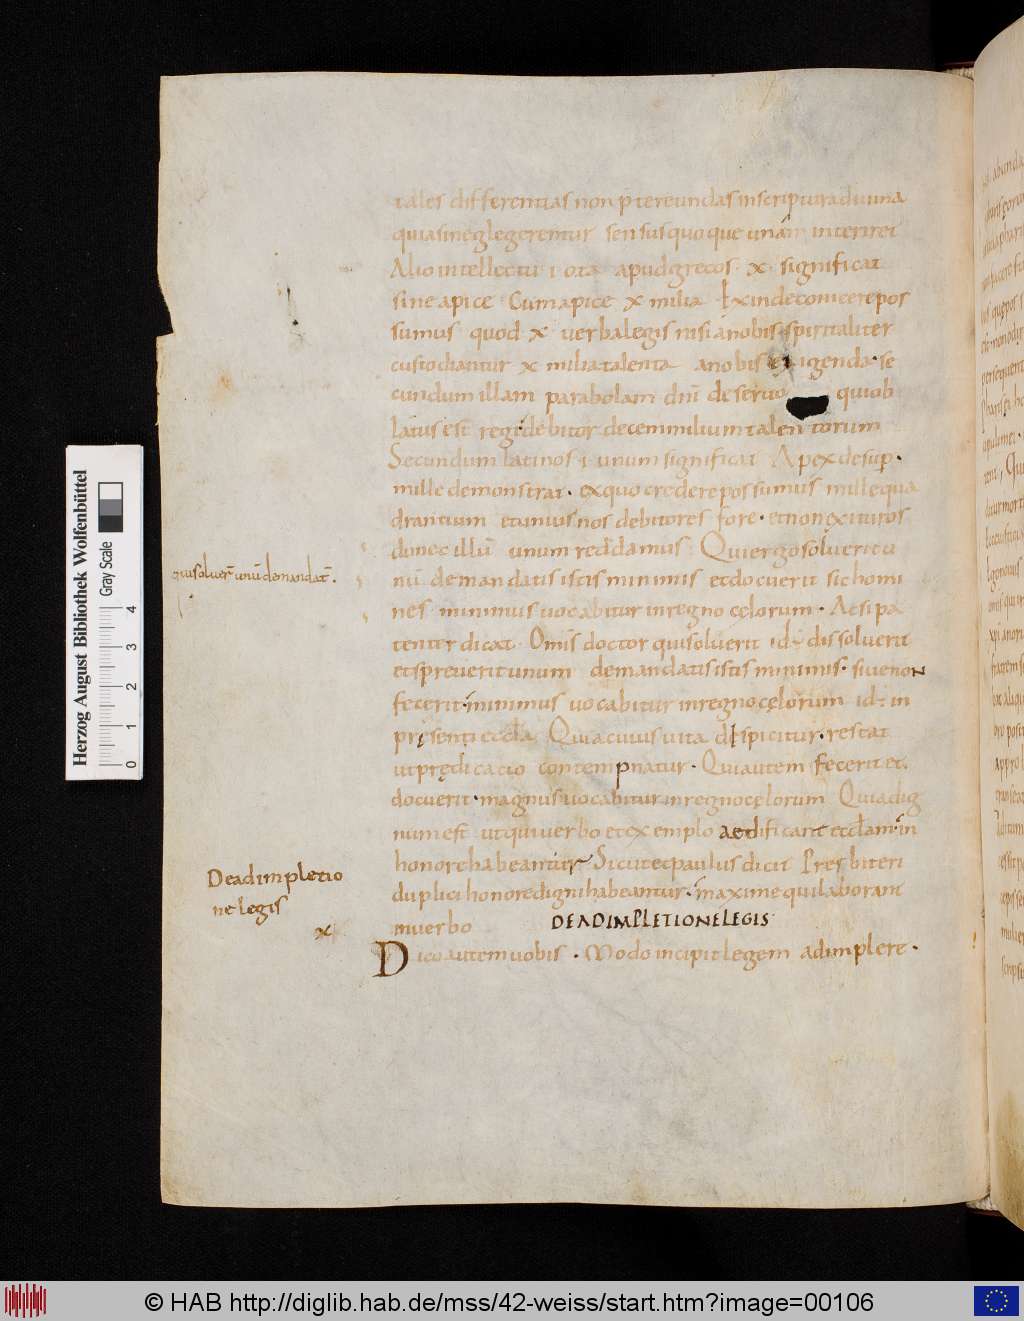 tales differentias non p̄tereundas inscriptura diuina
quia sineglegerentur sensus quoque unam interiret
Alio intellectu iota apudgrecos x significat
sine apice Cum apice x milia Exindeconicere pos
sumus quod x uerba legis nisi anobis spiritaliter
custodiantur x milia talenta anobis exigenda· se
cundum illam parabolam dn̄i deseruo quiob
latus est regi debitor decem milium talentorum
Secundum latinos ·i· unum significat Apex desup·
mille demonstrat· exquo credere possumus mille qua
drantium et unius nos debitores fore· etnon exituros
donec illū unum reddamus: Qui ergo soluerit u
nū demandatis istis minimis et docuerit sic homi
nes· minimus uocabitur inregno cęlorum· Aet si pa
tenter dicat· Omīs doctor qui soluerit id÷ dissoluerit
et spreuerit unum demandatis istis minimis· siue non
fecerit· minimus uocabitur inregno cęlorum id÷ in
pręsenti eccl̄a· Quia cuius uita dispicitur· restat
ut prędicacio contempnatur· Qui autem fecerit et
docuerit· magnus uocabitur inregno cęlorum Quia dig
num est ut qui uerbo et exemplo aedificant eccl̄am in
honore habeantur Sicut et paulus dicit Presbiteri
duplici honore digni habeantur· maxime qui laborant
inuerbo DE ADIMPLETIONE LEGIS
Dico autem uobis· Modo incipit legem adimplere·
qui soluer̄ unū demandat̄·
De adimpletio
ne legis
x
Herzog August Bibliothek Wolfenbüttel
Gray Scale
0 1 2 3 4
© HAB http://diglib.hab.de/mss/42-weiss/start.htm?image=00106